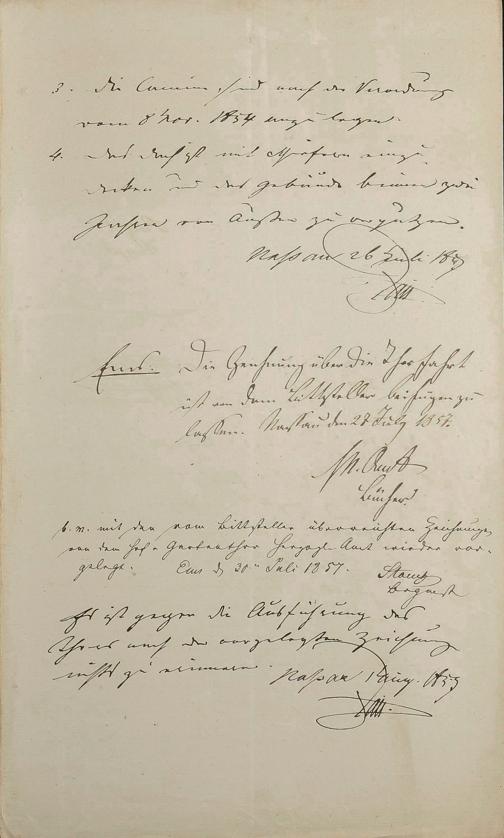 3. Die Camine sind nach der Verordnung
vom 8 Nov. 1854 anzulegen.
4. Das Dach ist mit Schiefern einzu
decken und das Gebäude binnen zwei
Jahren von Außen zu verputzen.
Nassau 26 Juli 1857
Ems. Die Zeichnung über die Thorfahrt
ist von dem Bittsteller beifügen zu
lassen. Nassau den 28 July 1857.
H. Amt
Bücher
b. m. mit den vom Bittsteller überreichten Zeichnungen
von dem Hof u Gartenthor Herzogl. Amt wieder vor-
gelegt. Ems d 30ten Juli 1857.
Es ist gegen die Ausführung des
Thores nach der vorgelegten Zeichnung
nichts zu erinnern. Nassau 1 Aug. 1857